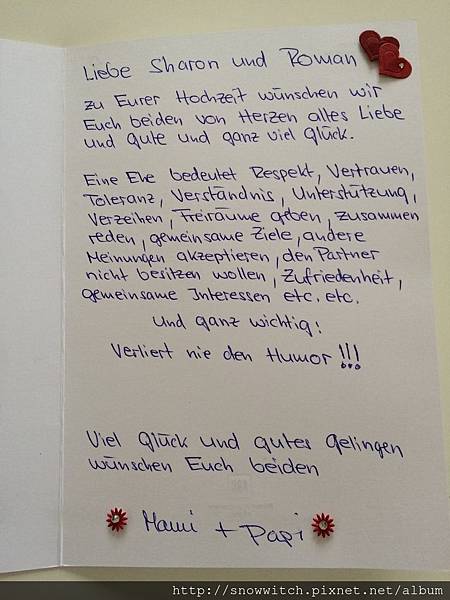 Liebe Sharon und Roman
zu Eurer Hochzeit wünschen wir
Euch beiden von Herzen alles Liebe
und Gute und ganz viel Glück.
Eine Ehe bedeutet Respekt, Vertrauen,
Toleranz, Verständnis, Unterstützung,
Verzeihen, Freiräume geben, zusammen
reden, gemeinsame Ziele, andere
Meinungen akzeptieren, den Partner
nicht besitzen wollen, Zufriedenheit,
gemeinsame Interessen etc. etc.
Und ganz wichtig:
Verliert nie den Humor!!!
Viel Glück und gutes Gelingen
wünschen Euch beiden
Mami + Papi
http://snowwitch.pixnet.net/album